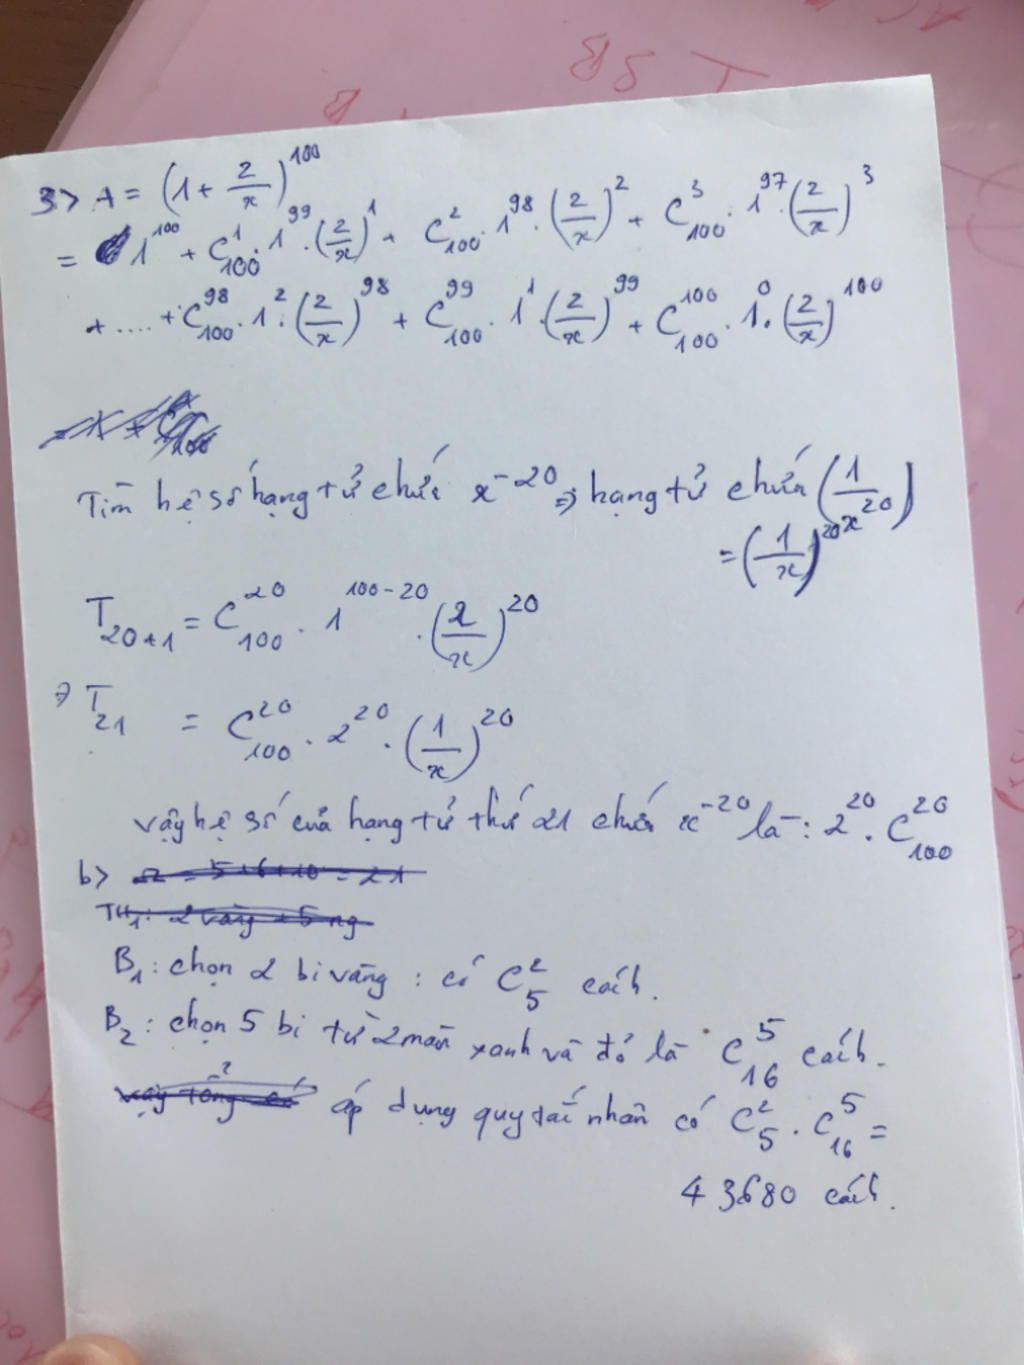 3> A = (1 + 2/x)^100
= 1^100 + C^1_100 . 1^99 . (2/x)^1 + C^2_100 . 1^98 . (2/x)^2 + C^3_100 . 1^97 (2/x)^3
+ .... + C^98_100 . 1^2 . (2/x)^98 + C^99_100 . 1^1 . (2/x)^99 + C^100_100 . 1^0 . (2/x)^100
Tìm hệ số hạng tử chứa x^-20 => hạng tử chứa (1/x^20)
= (1/x)^20
T_20+1 = C^20_100 . 1^100-20 . (2/x)^20
=> T_21 = C^20_100 . 2^20 . (1/x)^20
Vậy hệ số của hạng tử thứ 21 chứa x^-20 là : 2^20 . C^20_100
b> = 5+6+10 = 21
TH1: 2 vàng + 5 ng
B1 : chọn 2 bi vàng : có C^2_5 cách.
B2 : chọn 5 bi từ 2 màu xanh và đỏ là C^5_16 cách.
vậy tổng có áp dụng quy tắc nhân có C^2_5 . C^5_16 =
43680 cách.